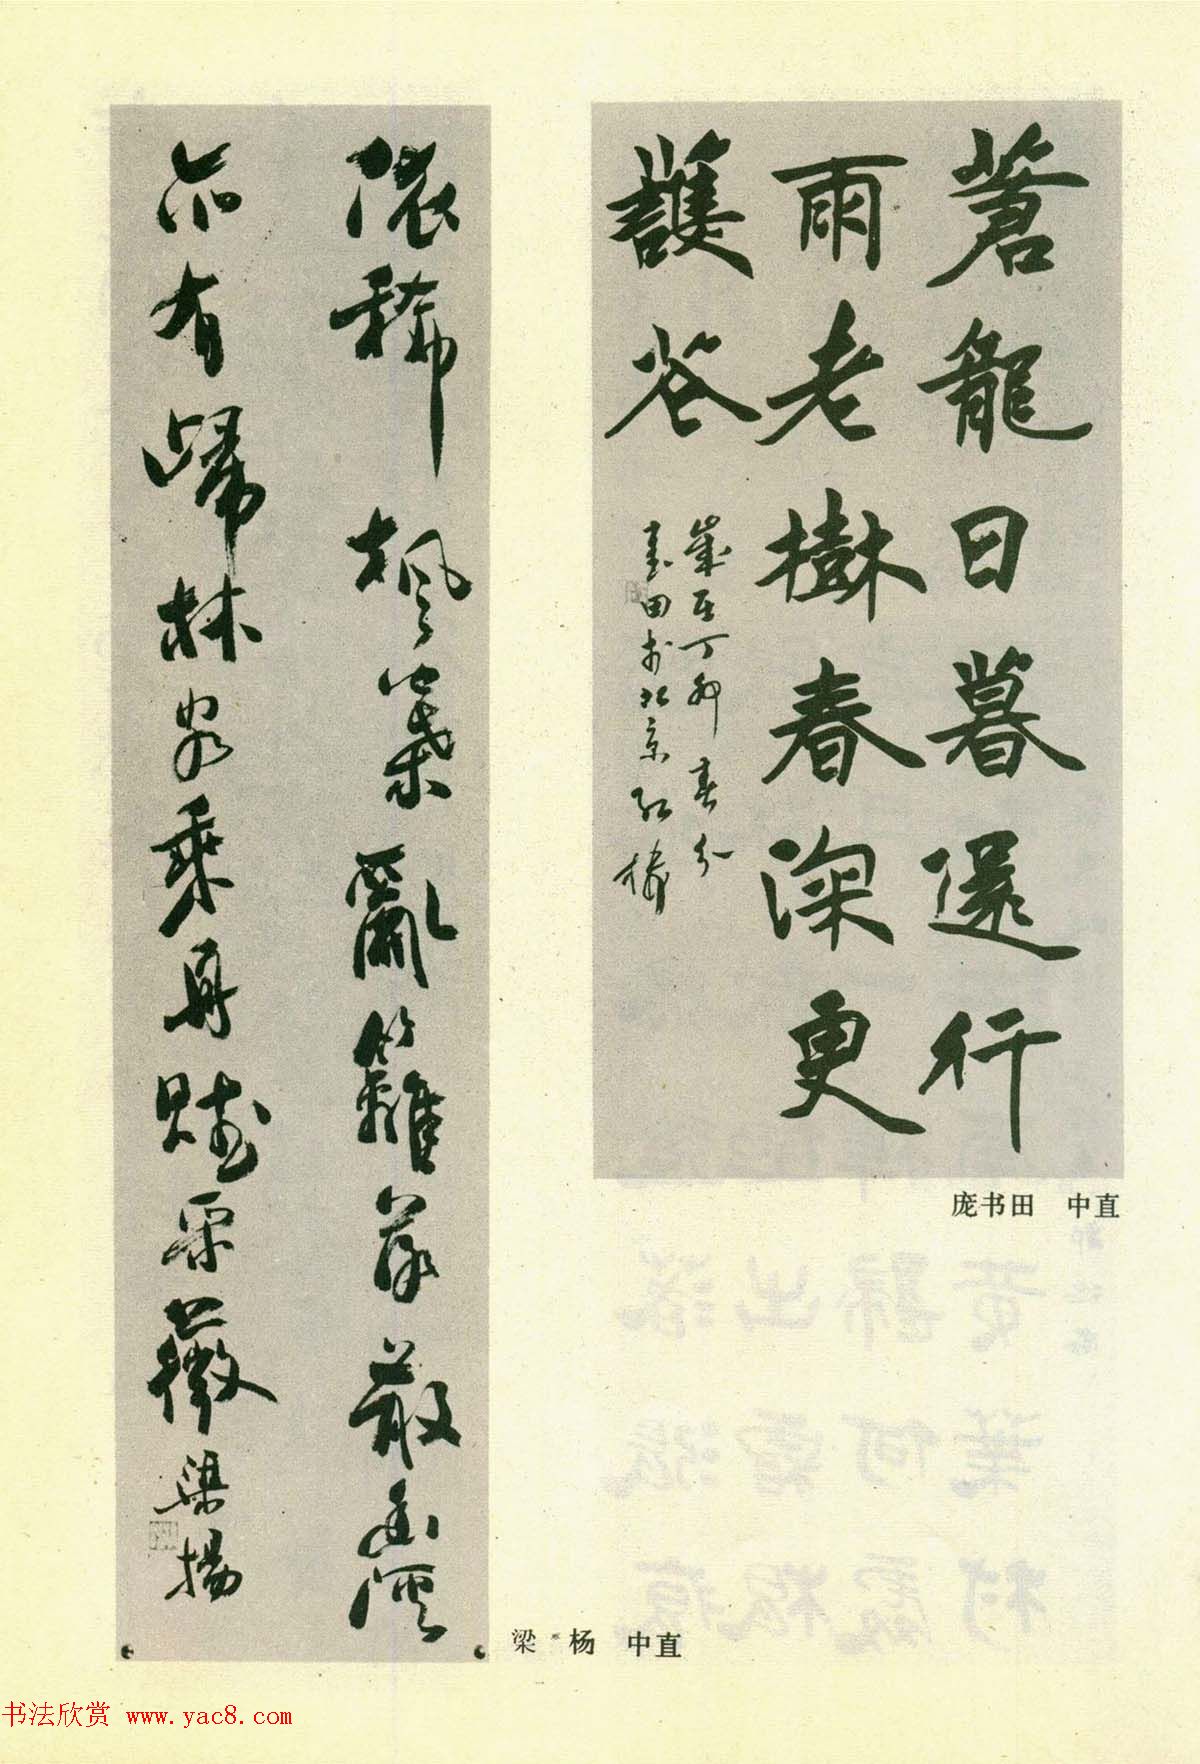 蒼龍日暮還行
雨老樹春深更
護花
歲在丁卯春分
書田於北京紅樓
庞书田 中直
依稀楓葉亂籬芳散幽
亦有歸林乘舟賦采薇
梁揚
梁 杨 中直
书法欣赏 www.yac8.com